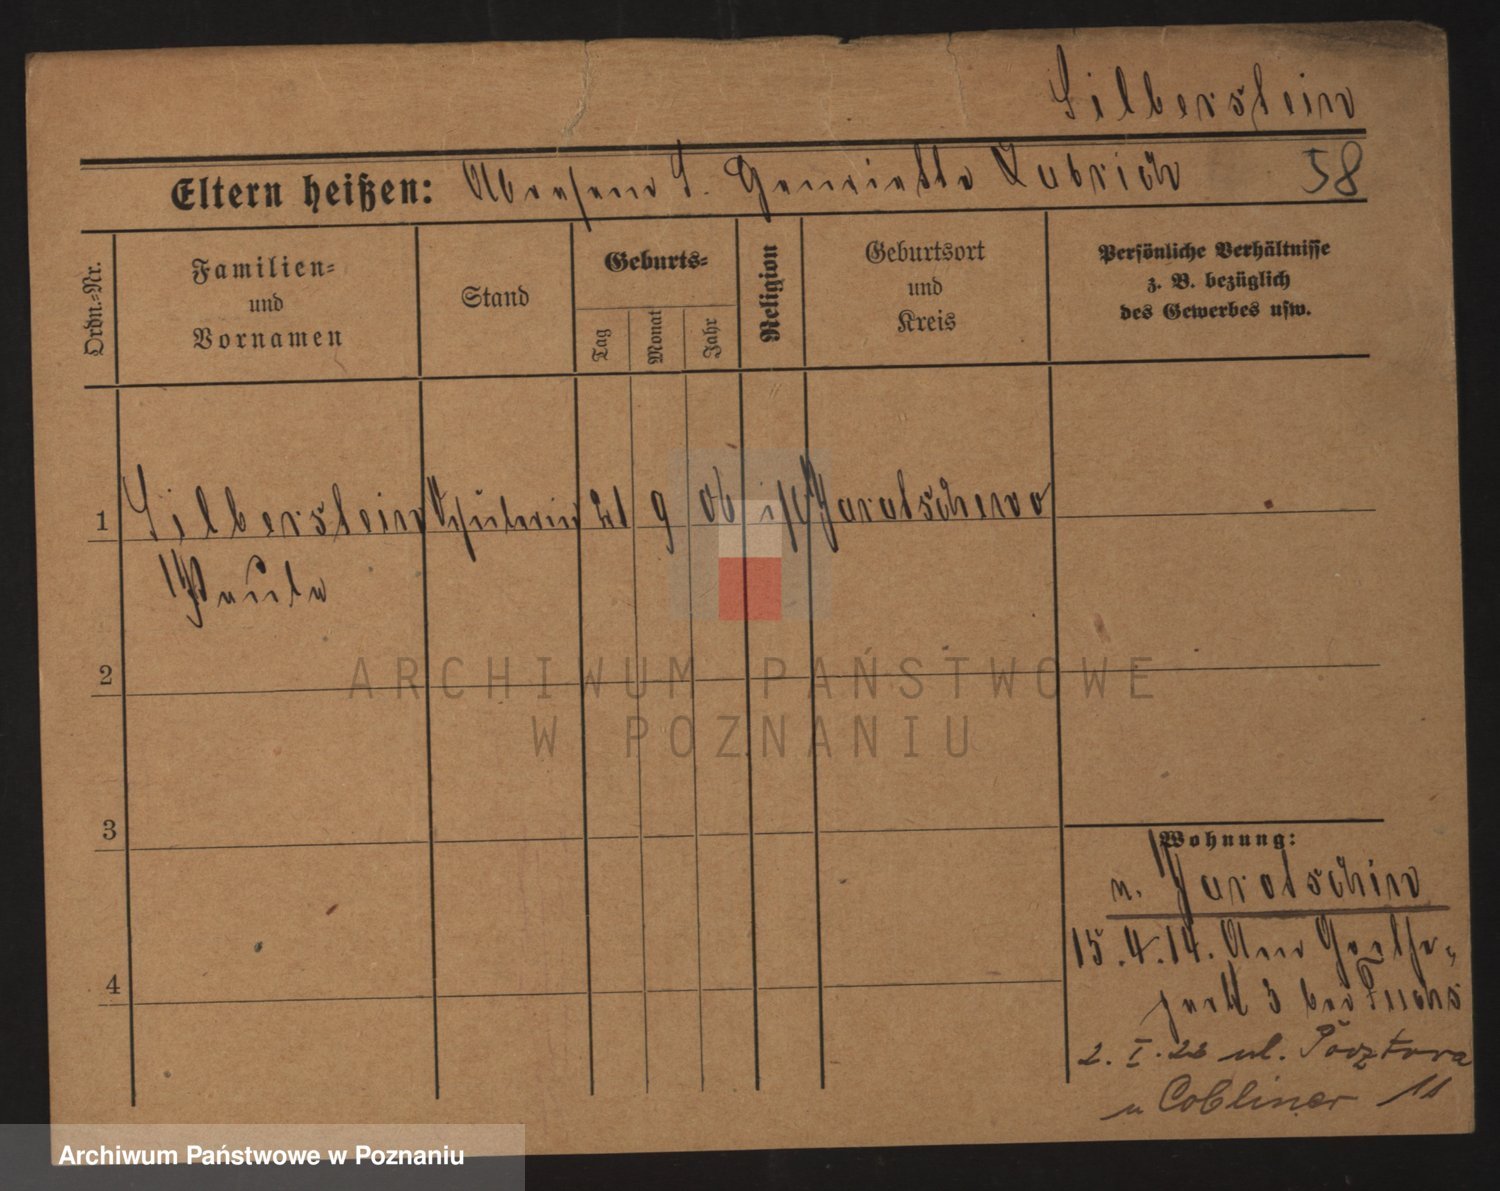 Silberstein
Eltern heißen: Abraham S. Henriette Lubrich 58
Ordn.=Nr.
Familien=
und
Vornamen
Stand
Geburts=
Tag
Monat
Jahr
Religion
Geburtsort
und
Kreis
Persönliche Verhältnisse
z. B. bezüglich
des Gewerbes usw.
1 Silberstein Schülerin 21 9 06 isr Jarotschin
Paula
2
3
4
Wohnung:
n. Jarotschin
15.4.14. Am
3 bei Fuchs
2. I. 22 ul. Pocztowa
u Cobliner 11
ARCHIWUM PAŃSTWOWE
W POZNANIU
Archiwum Państwowe w Poznaniu